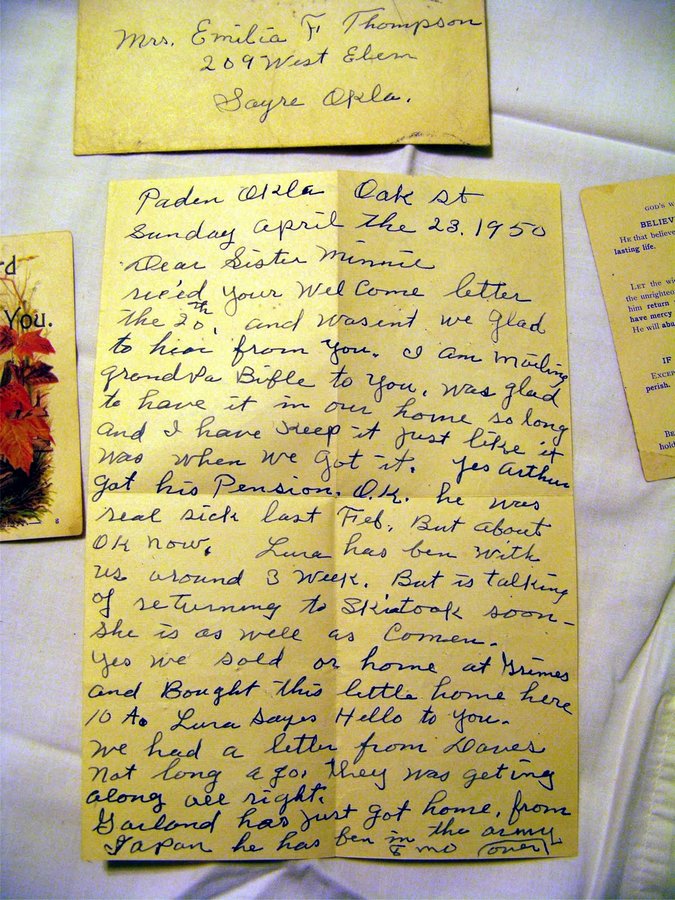 Mrs. Emilia F Thompson
209 West Elem
Sayre Okla.
Paden Okla Oak St
Sunday April the 23. 1950
Dear Sister Minnie
rec'ed your WelCome letter
the 20th, and wasint we glad
to hear from you. I am mailing
grandPa Bible to you, was glad
to have it in our home so long
and I have Keep it just like it
was when we got it. yes Arthur
got his Pension. O.K. he was
real sick last Feb, But about
OK now. Lura has ben with
us around 3 Week. But is talking
of returning to Skiatook soon-
she is as well as Comen.
yes we sold or home at Grimes
and Bought this little home here
10 A. Lura Sayes Hello to you.
We had a letter from Daves
Not long ago, they was geting
along all right.
Garland has just got home, from
Japan he has ben in the army
8 mo (over)
rd
You.
8
GOD'S W
BELIEV
He that believe
lasting life.
Let the wi
the unrighteo
him return
have mercy
He will aba
IF
Except
perish.
Be
hold